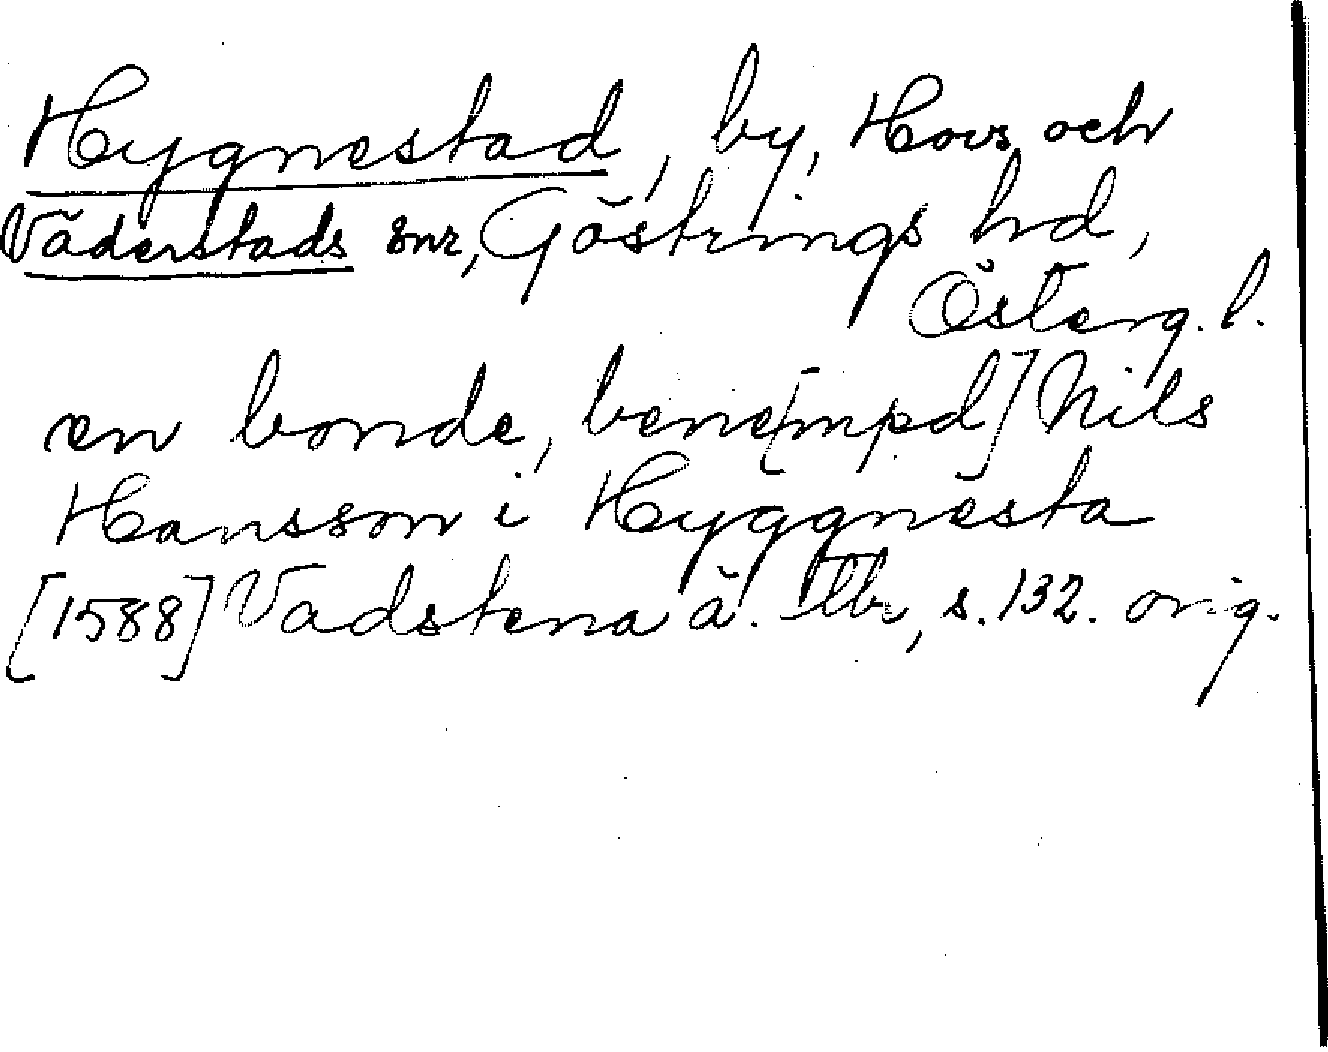 Hygnestad, by, Hovs och
Väderstads snr, Göstrings hd,
Österg. l.
en bonde, bene[mpd] Nils
Hansson i Hyggnesta
[1588] Vadstena ä. tb, s. 132. orig.